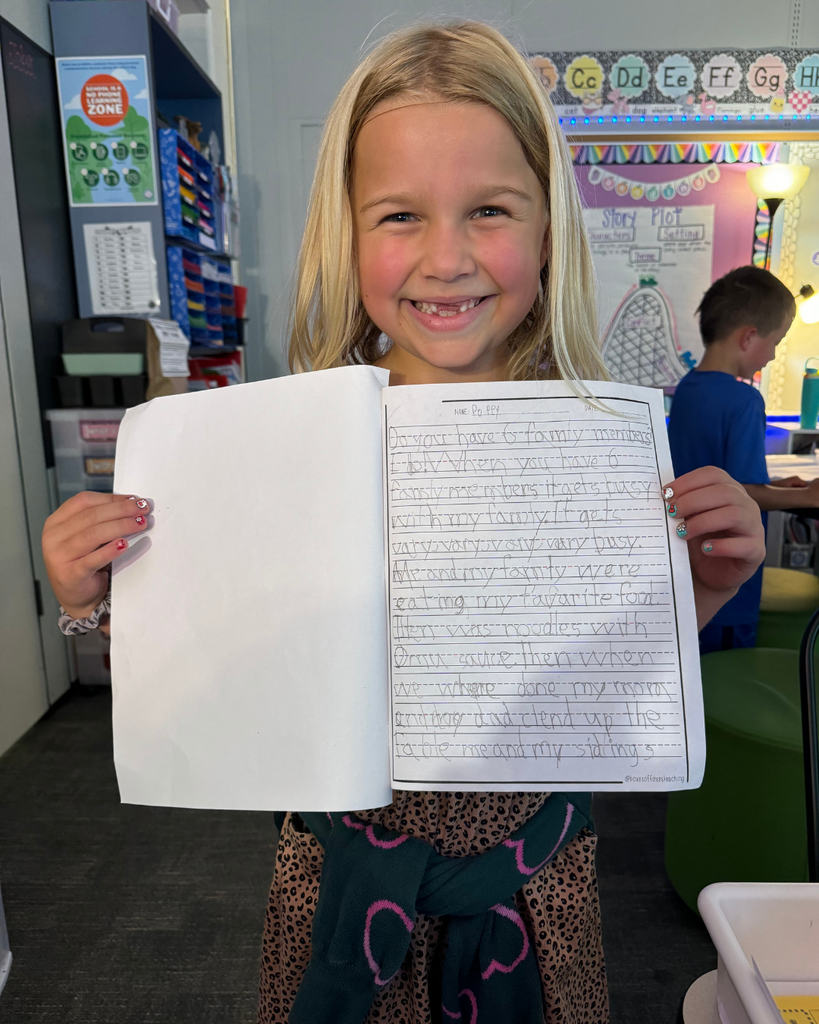 SCHOOL IS A
NO PHONE
LEARNING
ZONE
Cc Dd Ee Ff Gg Hh
Story Plot
Characters
Setting
Theme
NAME: Poppy
DATE:
Do you have 6 family members?
I do! When you have 6
family members it gets busy
with my family. It gets
vary vary vary vary busy.
Me and my family were
eating my favarite food.
Then was noodles with
sauce then when
we where done my mom
and my dad clend up the
table me and my sidlings